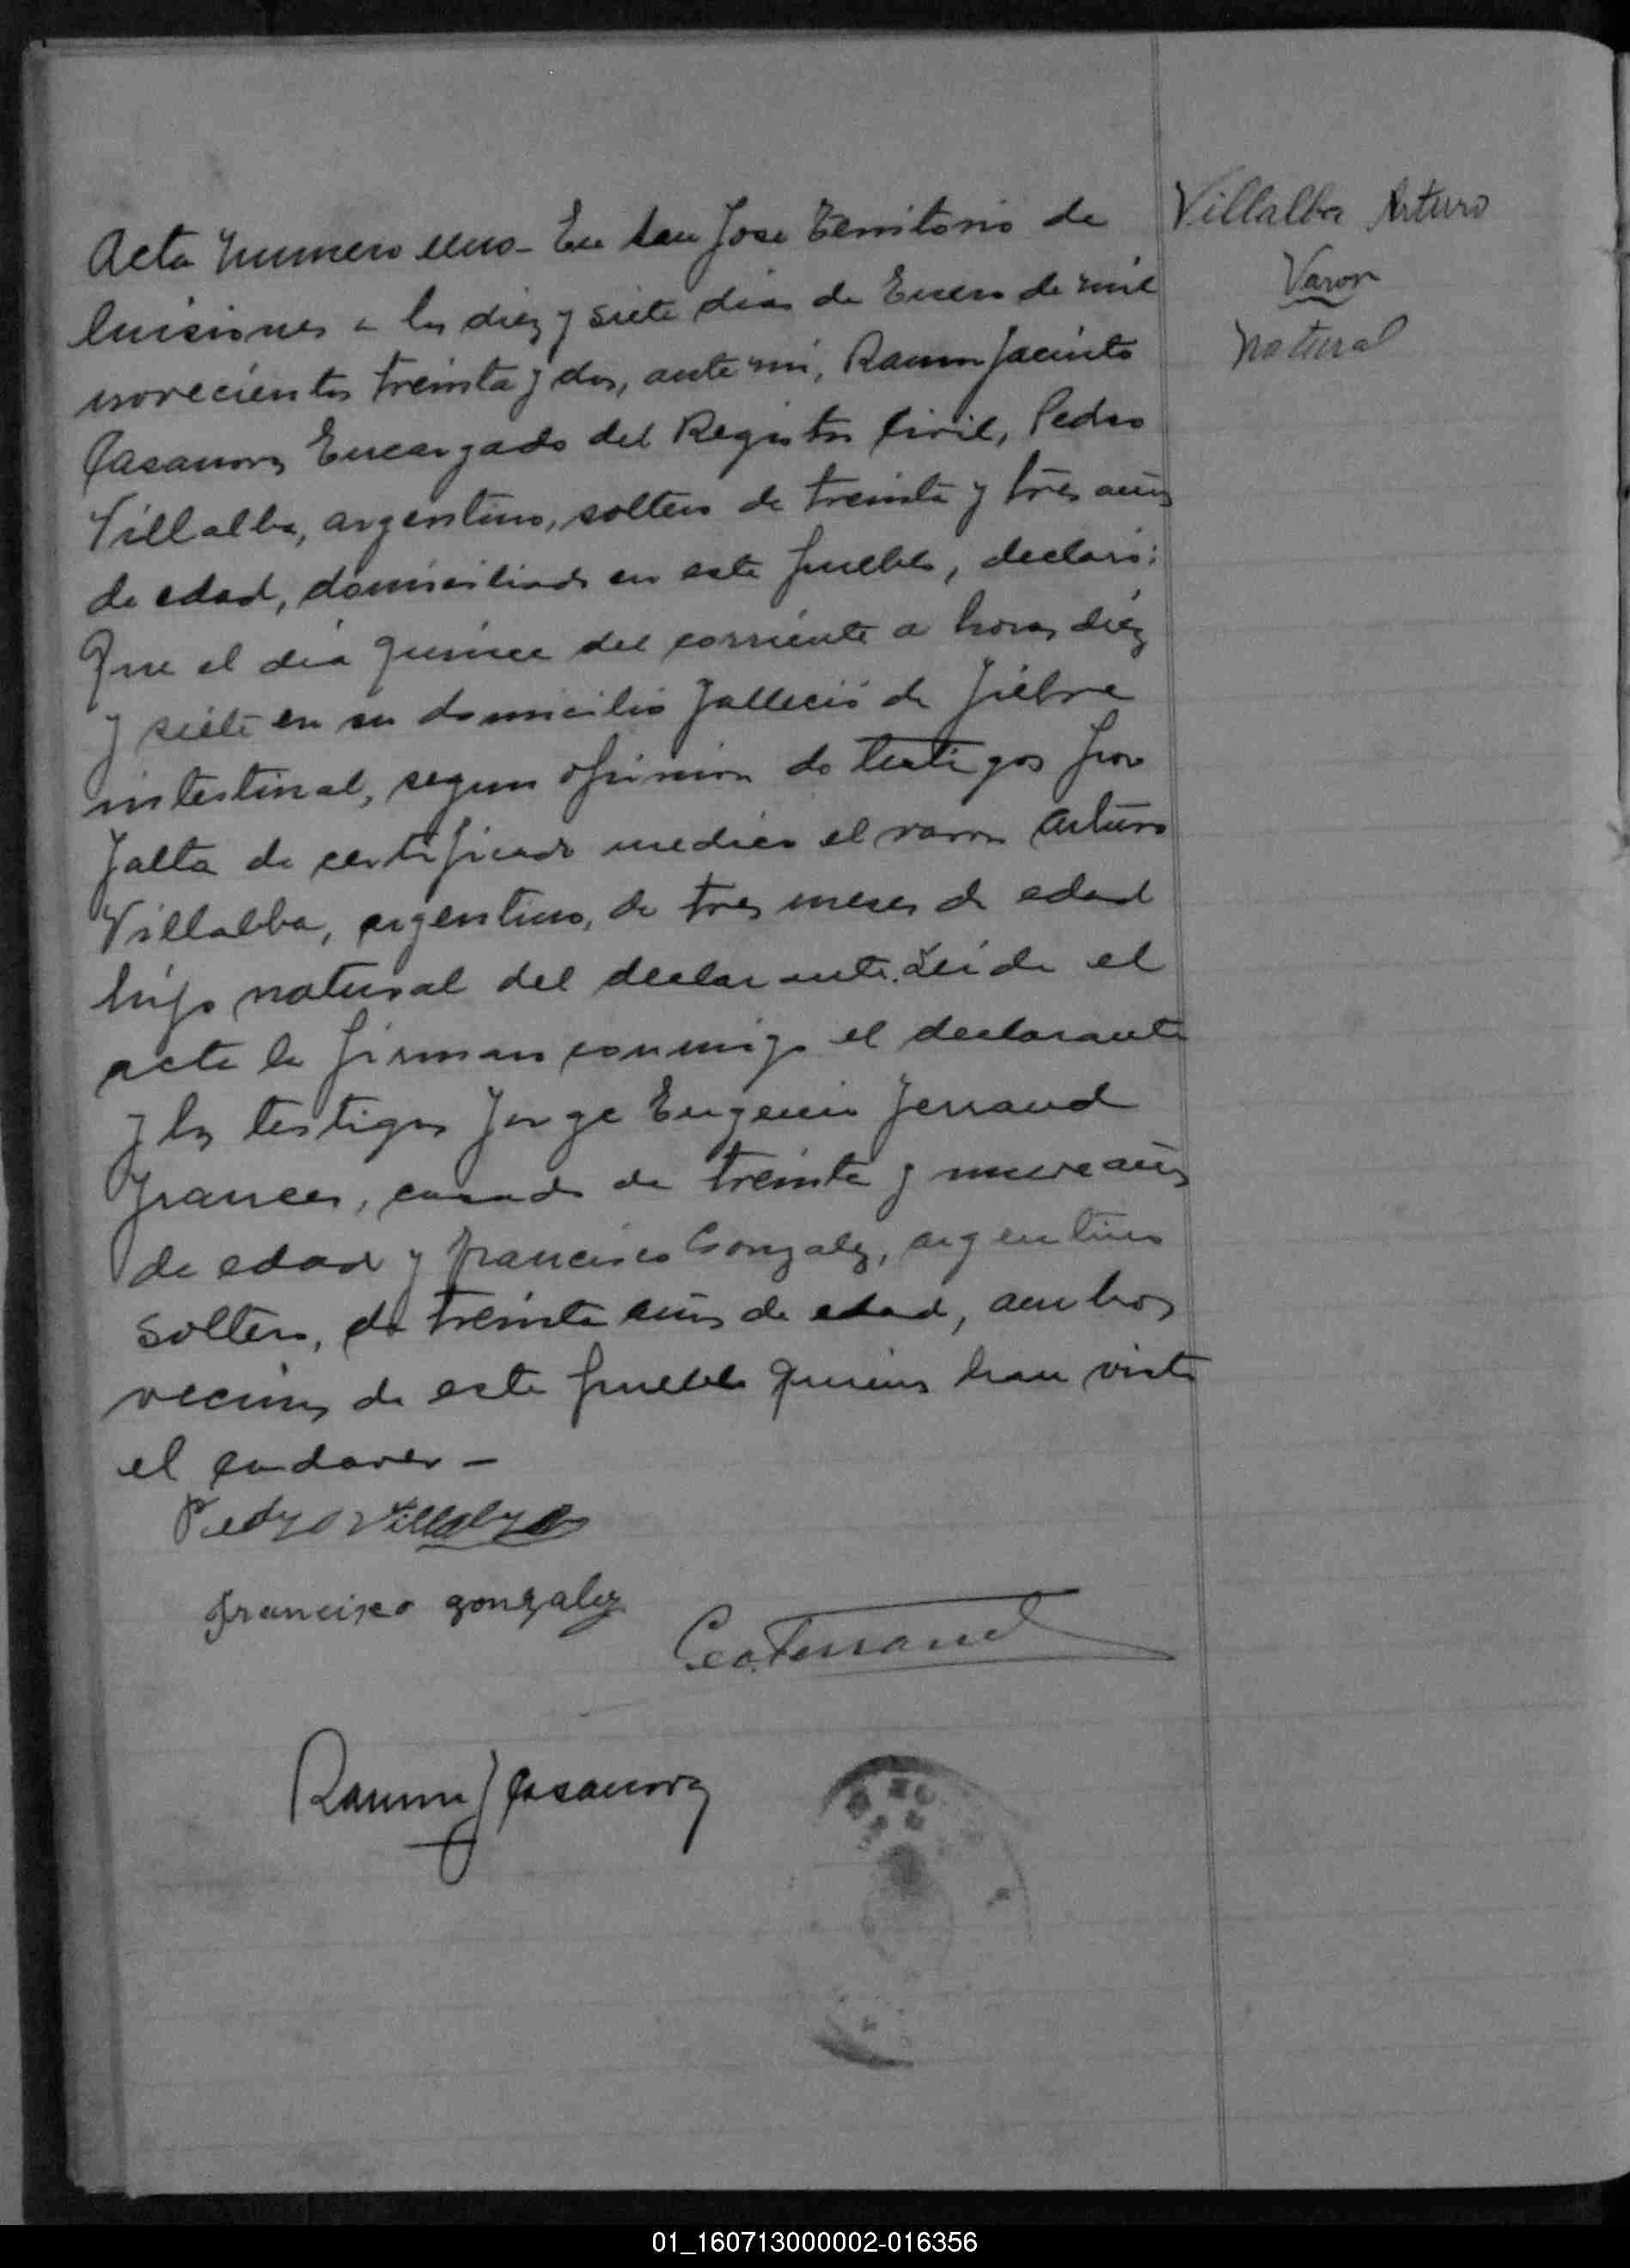 Acta Numero uno - En San Jose Territorio de
Misiones a los diez y siete dias de Enero de mil
novecientos treinta y dos, ante mi, Ramon Jacinto
Casanova Encargado del Registro Civil, Pedro
Villalba, argentino, soltero de treinta y tres años
de edad, domiciliado en este pueblo, declaró:
Que el dia quince del corriente a horas diez
y siete en su domicilio falleció de fiebre
intestinal, segun opinion de testigos por
falta de certificado medico el varon Arturo
Villalba, argentino, de tres meses de edad
hijo natural del declarante. Leida el
acta la firman conmigo el declarante
y los testigos Jorge Eugenio Ferrand
frances, casado de treinta y nueve años
de edad y Francisco Gonzalez, argentino
soltero, de treinta años de edad, ambos
vecinos de este pueblo quienes han visto
el cadaver -
Villalba Arturo
Varon
natural
Pedro Villalba
francisco gonzalez
Geo. Ferrand
Ramon J Casanova
01_160713000002-016356